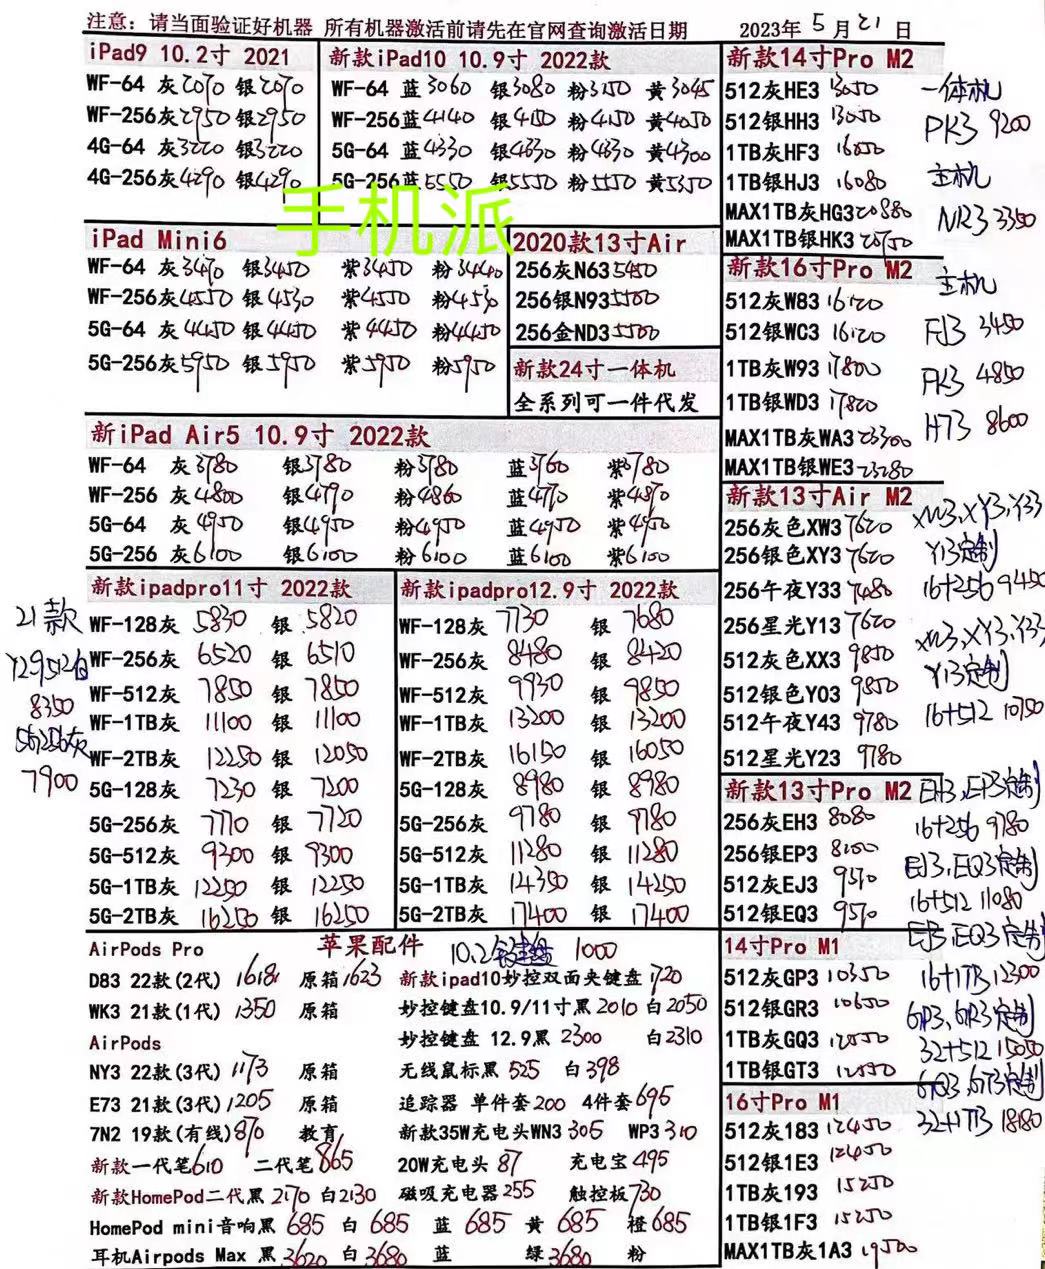 注意: 请当面验证好机器 所有机器激活前请先在官网查询激活日期 2023年5月21日
iPad9 10.2寸 2021
WF-64 灰2070 银2070
WF-256灰2950 银2950
4G-64 灰3220 银3220
4G-256灰4290 银4290
新款iPad10 10.9寸 2022款
WF-64 蓝3060 银3080 粉3150 黄3045
WF-256蓝4140 银4150 粉4150 黄4050
5G-64 蓝4330 银4330 粉4330 黄4300
5G-256蓝5550 银5550 粉5550 黄5350
手机派
iPad Mini6
WF-64 灰3470 银3450 紫3450 粉3440
WF-256灰4550 银4530 紫4550 粉4530
5G-64 灰4450 银4450 紫4450 粉4450
5G-256灰5950 银5950 紫5950 粉5950
2020款13寸Air
256灰N63 5450
256银N93 5500
256金ND3 5500
新款24寸一体机
全系列可一件代发
新iPad Air5 10.9寸 2022款
WF-64 灰3780 银3780 粉3780 蓝3760 紫3780
WF-256 灰4800 银4790 粉4860 蓝4770 紫4870
5G-64 灰4950 银4950 粉4950 蓝4950 紫4950
5G-256 灰6100 银6100 粉6100 蓝6100 紫6100
新款ipadpro11寸 2022款
WF-128灰 5830 银 5820
WF-256灰 6520 银 6510
WF-512灰 7850 银 7850
WF-1TB灰 11100 银 11100
WF-2TB灰 12250 银 12050
5G-128灰 7230 银 7200
5G-256灰 7710 银 7720
5G-512灰 9300 银 9300
5G-1TB灰 12250 银 12250
5G-2TB灰 16250 银 16250
21款
Y29512白
8350
7900
新款ipadpro12.9寸 2022款
WF-128灰 7730 银 7680
WF-256灰 8480 银 8420
WF-512灰 9930 银 9850
WF-1TB灰 13200 银 13200
WF-2TB灰 16150 银 16050
5G-128灰 8980 银 8980
5G-256灰 9780 银 9780
5G-512灰 11280 银 11280
5G-1TB灰 14350 银 14250
5G-2TB灰 17400 银 17400
苹果配件
AirPods Pro
D83 22款(2代) 1618 原箱1623
WK3 21款(1代) 1350 原箱
AirPods
NY3 22款(3代) 1173 原箱
E73 21款(3代) 1205 原箱
7N2 19款(有线)870 教育
新款一代笔610 二代笔865
新款HomePod二代黑 2170 白2130
HomePod mini音响黑 685 白 685 蓝 685 黄 685 橙685
耳机Airpods Max 黑3620 白3680 蓝 绿3680 粉
10.2 1000
新款ipad10妙控双面夹键盘1720
妙控键盘10.9/11寸黑2010 白2050
妙控键盘 12.9黑 2300 白2310
无线鼠标黑 525 白398
追踪器 单件套200 4件套695
新款35W充电头WN3 305 WP3 310
20W充电头 87 充电宝495
磁吸充电器255 触控板730
新款14寸Pro M2
512灰HE3 13050
512银HH3 13050
1TB灰HF3 16050
1TB银HJ3 16080
MAX1TB灰HG3 20880
MAX1TB银HK3 20750
新款16寸Pro M2
512灰W83 16120
512银WC3 16120
1TB灰W93 17800
1TB银WD3 17820
MAX1TB灰WA3 23300
MAX1TB银WE3 23280
新款13寸Air M2
256灰色XW3 7620
256银色XY3 7620
256午夜Y33 7480
256星光Y13 7620
512灰色XX3 9850
512银色Y03 9850
512午夜Y43 9780
512星光Y23 9780
新款13寸Pro M2
256灰EH3 8080
256银EP3 8100
512灰EJ3 9570
512银EQ3 9570
14寸Pro M1
512灰GP3 10350
512银GR3 10650
1TB灰GQ3 12050
1TB银GT3
16寸Pro M1
512灰183 12450
512银1E3 12450
1TB灰193 15250
1TB银1F3 15250
MAX1TB灰1A3 19500
一体机
PK3 9200
主机
NR3 3350
主机
FJ3 3450
FK3 4850
H73 8600
XW3、XY3、Y33
Y13定制
16+256 9450
XW3、XY3、Y33
Y13定制
16+512 10750
EH3、EP3定制
16+256 9780
EJ3、EQ3定制
16+512 11080
EJ3、EQ3定制
16+1TB 12300
GP3、GR3定制
32+512 15050
GQ3、GT3定制
32+1TB 18180